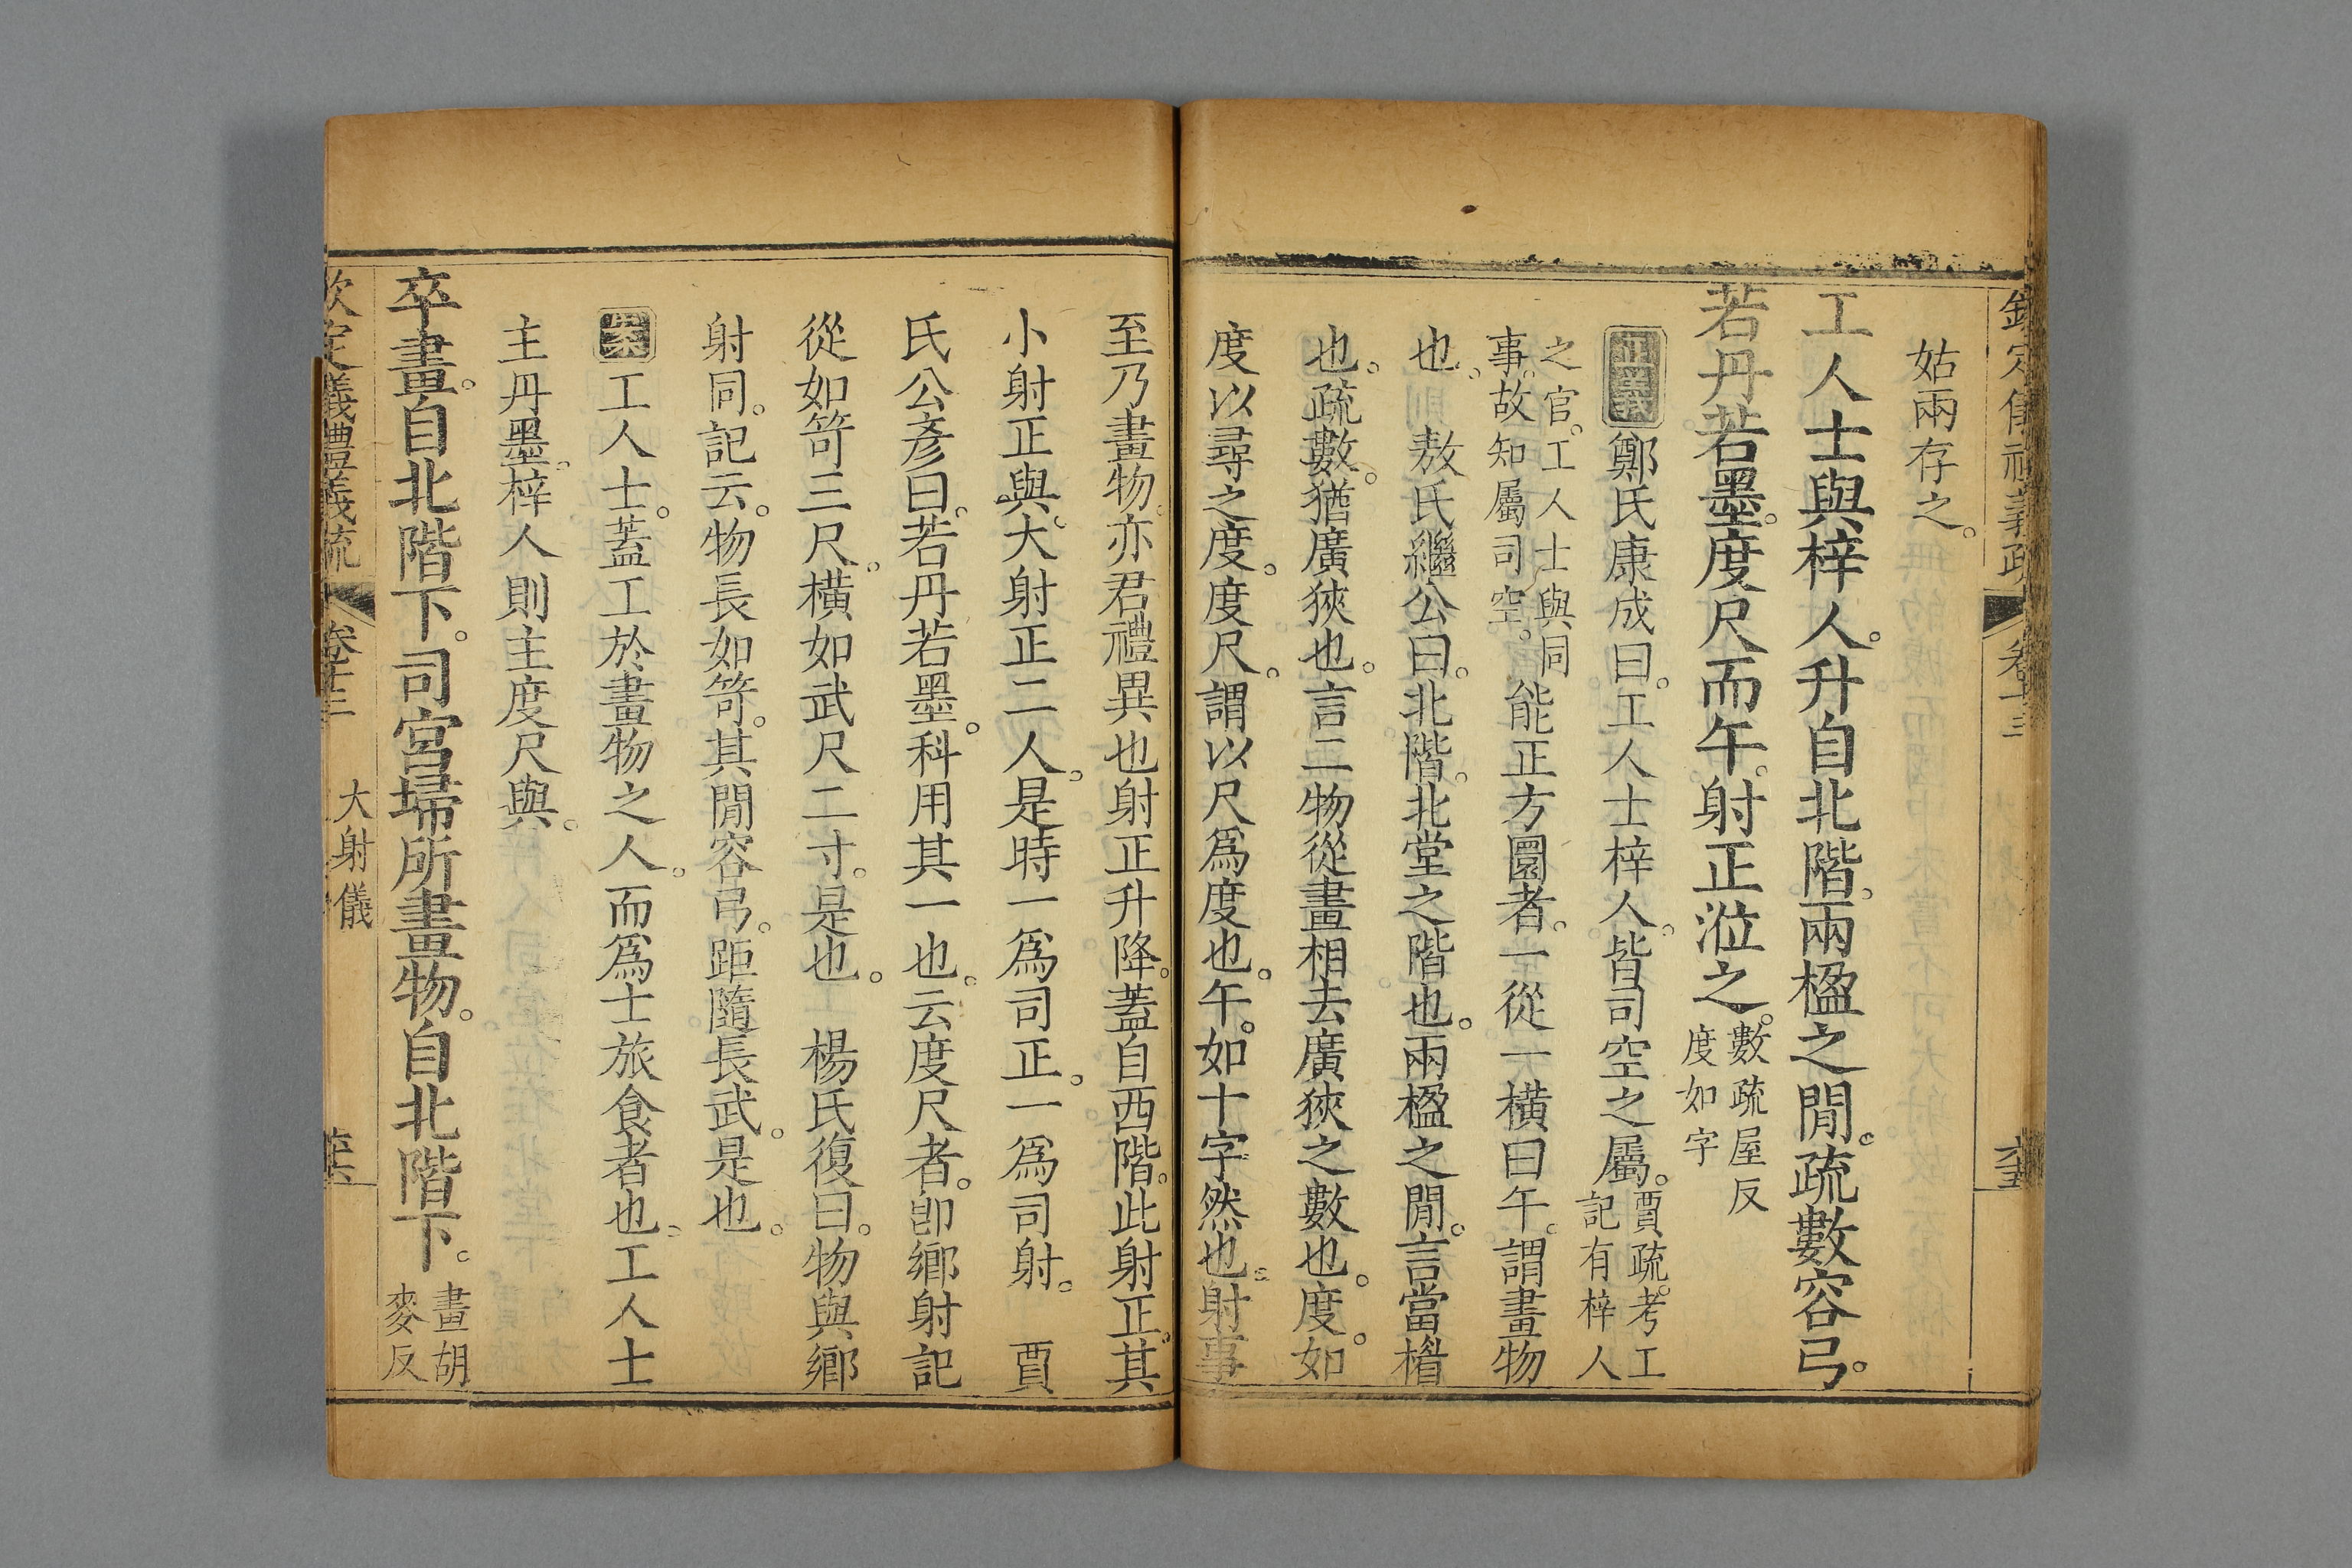 欽定儀禮義疏 卷十三
姑兩存之。
工人士與梓人。升自北階。兩楹之閒。疏數容弓。
若丹若墨。度尺而午。射正涖之。數疏屋反度如字
正義 鄭氏康成曰。工人士梓人。皆司空之屬。賈疏。考工記有梓人
之官。工人士與同事。故知屬司空。能正方圜者。一從一橫曰午。謂畫物
也。 敖氏繼公曰。北階。北堂之階也。兩楹之閒。言當楣
也。疏數。猶廣狹也。言二物從畫相去廣狹之數也。度。如
度以尋之度。度尺。謂以尺爲度也。午。如十字然也。射事
至乃畫物。亦君禮異也射正升降。蓋自西階。此射正。其
小射正與。大射正二人。是時一爲司正。一爲司射。 賈
氏公彥曰。若丹若墨。科用其一也。云度尺者。卽鄉射記
從如笴三尺。橫如武尺二寸。是也。 楊氏復曰。物與鄉
射同。記云。物長如笴。其閒容弓。距隨長武。是也。
案 工人士。蓋工於畫物之人。而爲士旅食者也。工人士
主丹墨。梓人則主度尺與。
卒畫。自北階下。司宮埽所畫物。自北階下。畫胡麥反
欽定儀禮義疏 卷十三 大射儀